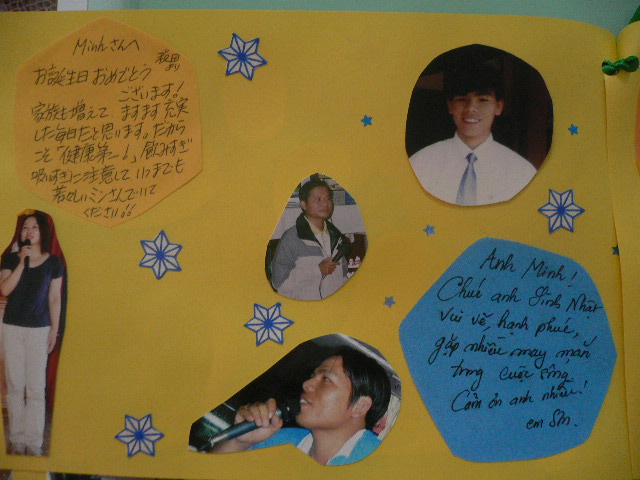 Minhさんへ
お誕生日おめでとう
ございます！
家族も増えて、ますます充実
した毎日だと思います。だから
こそ「健康第一」、飲みすぎ
吸いすぎに注意していつまでも
若々しいミンさんでいて
ください。
Anh Minh!
Chúc anh Sinh Nhật
vui vẽ, hạnh phúc,
gặp nhiều may mắn
trong cuộc sống
Cảm ơn anh nhiều!
em Sơn.